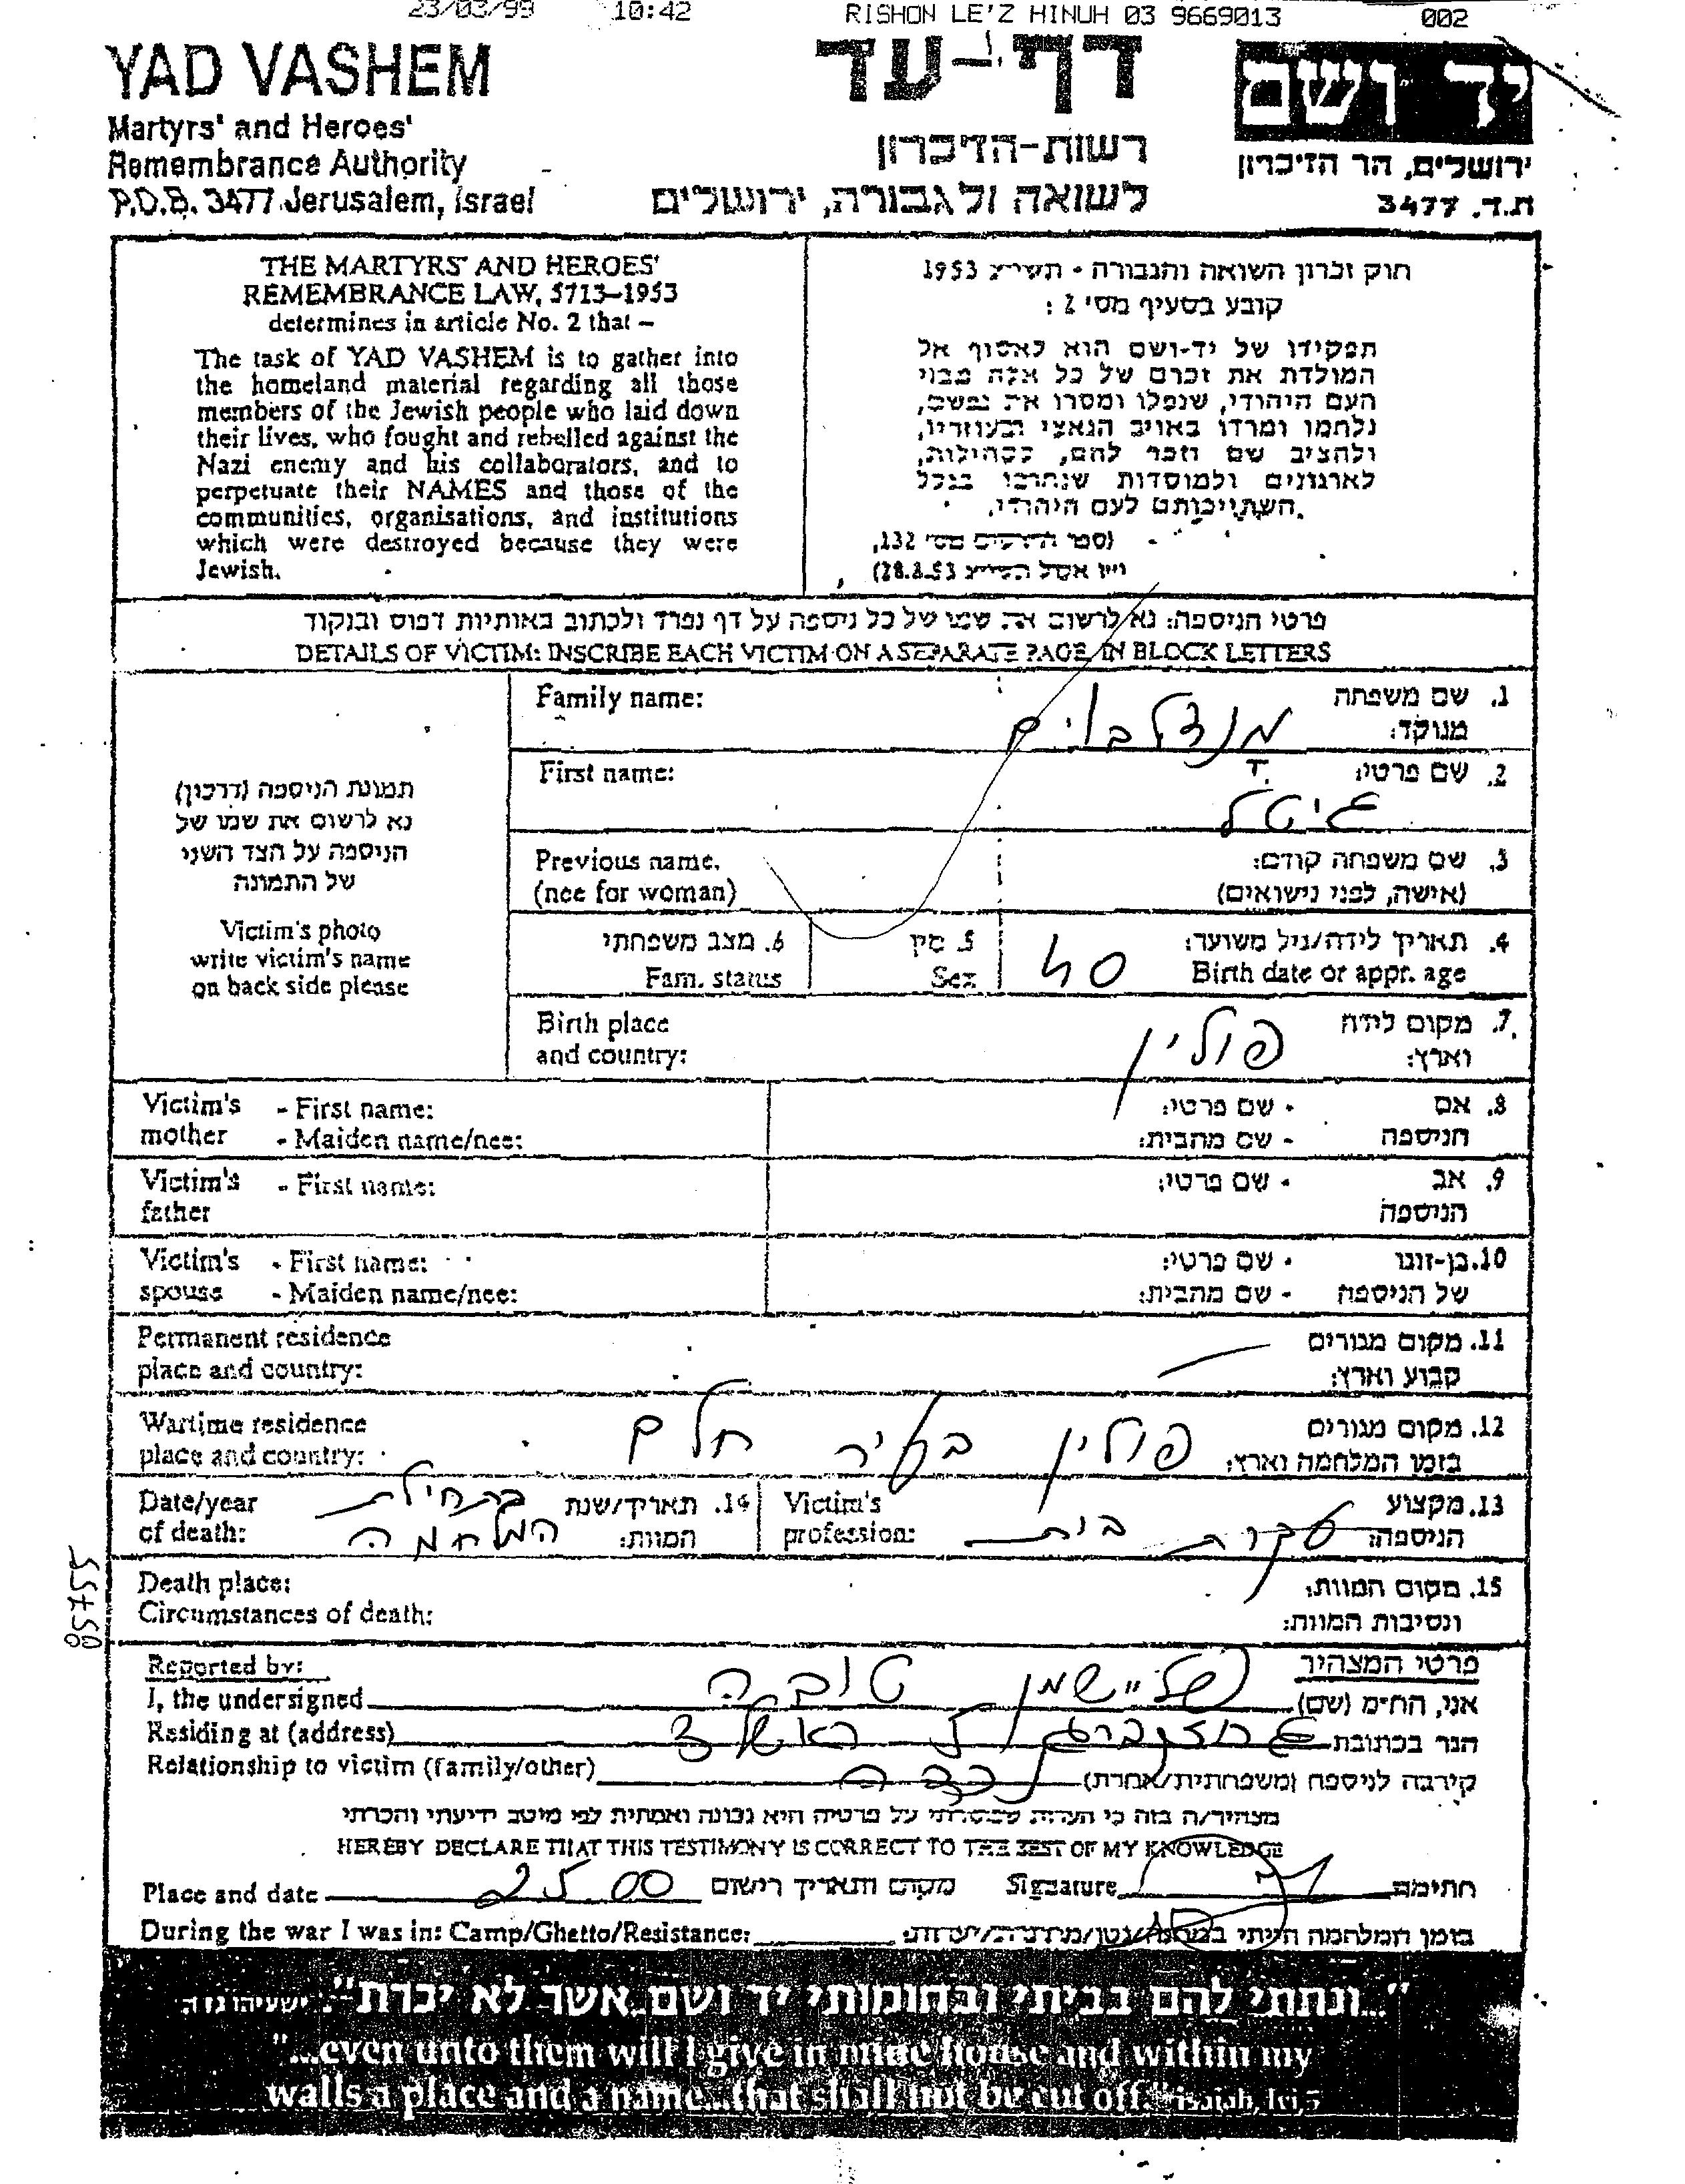 23/03/99 10:42 RISHON LE'Z HINUH 03 9669013 002
YAD VASHEM
Martyrs' and Heroes'
Remembrance Authority
P.O.B. 3477 Jerusalem, Israel
דף-עד
רשות-הזיכרון
לשואה ולגבורה, ירושלים
יד ושם
ירושלים, הר הזיכרון
ת.ד. 3477
THE MARTYRS' AND HEROES'
REMEMBRANCE LAW, 5713-1953
determines in article No. 2 that –
The task of YAD VASHEM is to gather into
the homeland material regarding all those
members of the Jewish people who laid down
their lives, who fought and rebelled against the
Nazi enemy and his collaborators, and to
perpetuate their NAMES and those of the
communities, organisations, and institutions
which were destroyed because they were
Jewish.
חוק זכרון השואה והגבורה - תשי"ג 1953
קובע בסעיף מס' 2 :
תפקידו של יד-ושם הוא לאסוף אל
המולדת את זכרם של כל אלה מבני
העם היהודי, שנפלו ומסרו את נפשם,
נלחמו ומרדו באויב הנאצי ובעוזריו,
ולהציב שם וזכר להם, לקהילות,
לארגונים ולמוסדות שנחרבו בגלל
השתייכותם לעם היהודי.
(ספר החוקים מס' 132,
י"ז אלול תשי"ג 28.8.53)
פרטי הניספה: נא לרשום את שמו של כל ניספה על דף נפרד ולכתוב באותיות דפוס ובנקוד
DETAILS OF VICTIM: INSCRIBE EACH VICTIM ON A SEPARATE PAGE, IN BLOCK LETTERS
תמונת הניספה (דרכון)
נא לרשום את שמו של
הניספה על הצד השני
של התמונה
Victim's photo
write victim's name
on back side please
Family name: 1. שם משפחה
מנוקד: מנדלבוים
First name: 2. שם פרטי:
גיטל
Previous name, 3. שם משפחה קודם:
(nee for woman) (אישה, לפני נישואים)
6. מצב משפחתי 5. מין 4. תאריך לידה/גיל משוער:
Fam. status Sex 40 Birth date or appr. age
Birth place 7. מקום לידה
and country: וארץ: פולין
Victim's - First name: - שם פרטי: 8. אם
mother - Maiden name/nee: - שם מהבית: הניספה
Victim's - First name: - שם פרטי: 9. אב
father הניספה
Victim's - First name: - שם פרטי: 10. בן-זוגו
spouse - Maiden name/nee: - שם מהבית: של הניספה
Permanent residence 11. מקום מגורים
place and country: קבוע וארץ:
Wartime residence 12. מקום מגורים
place and country: בזמן המלחמה וארץ: פולין בעיר חלם
Date/year 14. תאריך/שנת בתחילת
of death: המוות: המלחמה
Victim's 13. מקצוע
profession: הניספה: עקרת בית
Death place: 15. מקום המוות:
Circumstances of death: ונסיבות המוות:
55750
Reported by: פרטי המצהיר
I, the undersigned אני, הח"מ (שם) טובה
Residing at (address) הגר בכתובת
Relationship to victim (family/other) קירבה לניספה (משפחתית/אחרת) נכדה
מצהיר/ה בזה כי העדות שמסרתי על פרטיה היא נכונה ואמתית לפי מיטב ידיעתי והכרתי
HEREBY DECLARE THAT THIS TESTIMONY IS CORRECT TO THE BEST OF MY KNOWLEDGE
Place and date 25.00 מקום ותאריך רישום Signature חתימה
During the war I was in: Camp/Ghetto/Resistance: בזמן המלחמה הייתי
"...ונתתי להם בביתי ובחומותי יד ושם אשר לא יכרת". ישעיהו נו ה
"...even unto them will I give in mine house and within my
walls a place and a name...that shall not be cut off." isaiah, lvi,5